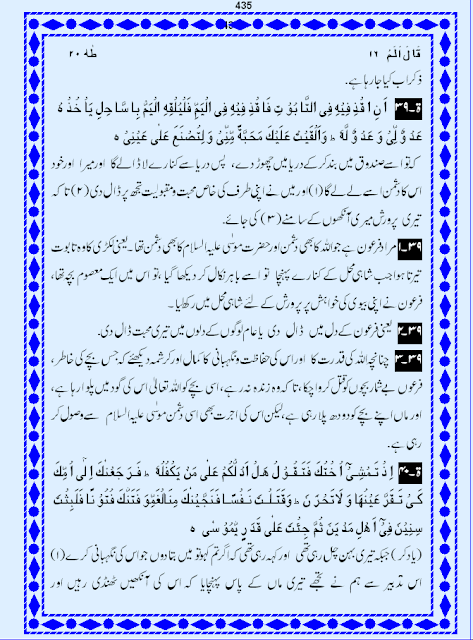 435
قَالَ اَلَمْ ١٦ طٰهٰ ٢٠
ذکر اب کیا جا رہا ہے۔
ق-٣٩ اَنِ اقْذِفِيْهِ فِى التَّابُوْتِ فَاقْذِفِيْهِ فِى الْيَمِّ فَلْيُلْقِهِ الْيَمُّ بِالسَّاحِلِ يَاْخُذْهُ
عَدُوٌّ لِّىْ وَعَدُوٌّ لَّهٗ ؕ وَاَلْقَيْتُ عَلَيْكَ مَحَبَّةً مِّنِّىْ وَلِتُصْنَعَ عَلٰى عَيْنِىْ ه
کہ تو اسے صندوق میں بند کر کے دریا میں چھوڑ دے، پس دریا اسے کنارے لا ڈالے گا اور میرا اور خود
اس کا دشمن اسے لے لے گا (۱) اور میں نے اپنی طرف کی خاص محبت و مقبولیت تجھ پر ڈال دی (۲) تاکہ
تیری پرورش میری آنکھوں کے سامنے (۳) کی جائے۔
٣٩-١ مراد فرعون ہے جو اللہ کا بھی دشمن اور حضرت موسیٰ علیہ السلام کا بھی دشمن تھا۔ یعنی لکڑی کا وہ تابوت
تیرتا ہوا جب شاہی محل کے کنارے پہنچا تو اسے باہر نکال کر دیکھا گیا، تو اس میں ایک معصوم بچہ تھا،
فرعون نے اپنی بیوی کی خواہش پر پرورش کے لئے شاہی محل میں رکھ لیا۔
٣٩-٢ یعنی فرعون کے دل میں ڈال دی یا عام لوگوں کے دلوں میں تیری محبت ڈال دی۔
٣٩-٣ چنانچہ اللہ کی قدرت کا اور اس کی حفاظت و نگہبانی کا کمال اور کرشمہ دیکھئے کہ جس بچے کی خاطر،
فرعون بے شمار بچوں کو قتل کروا چکا، تاکہ وہ زندہ نہ رہے، اسی بچے کو اللہ تعالیٰ اس کی گود میں پلوا رہا ہے،
اور ماں اپنے بچے کو دودھ پلا رہی ہے، لیکن اس کی اجرت بھی اسی دشمن موسیٰ علیہ السلام سے وصول کر
رہی ہے۔
ق-٤٠ اِذْ تَمْشِىْۤ اُخْتُكَ فَتَقُوْلُ هَلْ اَدُلُّكُمْ عَلٰى مَنْ يَّكْفُلُهٗ ؕ فَرَجَعْنٰكَ اِلٰٓى اُمِّكَ
كَىْ تَقَرَّ عَيْنُهَا وَلَا تَحْزَنَ ؕ وَقَتَلْتَ نَفْسًا فَنَجَّيْنٰكَ مِنَ الْغَمِّ وَفَتَنّٰكَ فُتُوْنًا فَلَبِثْتَ
سِنِيْنَ فِىْۤ اَهْلِ مَدْيَنَ ثُمَّ جِئْتَ عَلٰى قَدَرٍ يّٰمُوْسٰى ه
(یاد کر) جبکہ تیری بہن چل رہی تھی اور کہہ رہی تھی کہ اگر تم کہو تو میں بتا دوں جو اس کی نگہبانی کرے (۱)
اس تدبیر سے ہم نے تجھے تیری ماں کے پاس پہنچایا کہ اس کی آنکھیں ٹھنڈی رہیں اور